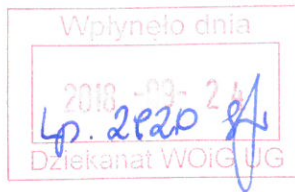 Wpłynęło dnia
2018 -09- 24
Lp. 2820
Dziekanat WOiG UG